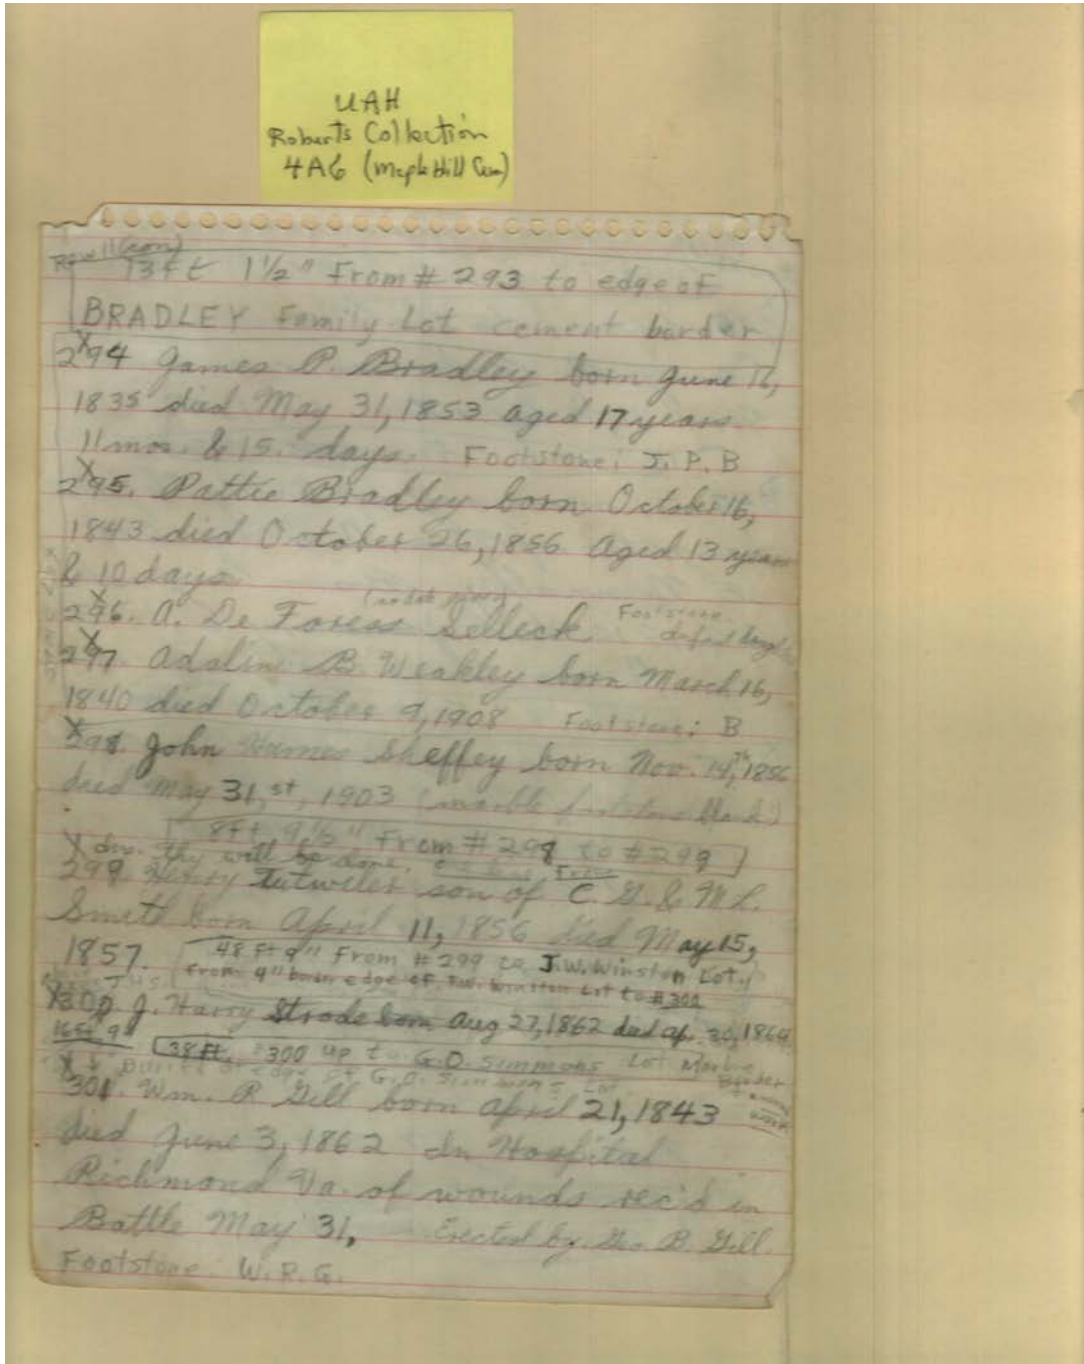 UAH
Roberts Collection
4A6 (Maple Hill Cem)
Row 11 (con)
13ft 1½" From # 293 to edge of
BRADLEY Family Lot cement border
294 James P. Bradley born June 16,
1835 died May 31, 1853 aged 17 years
11 mos. & 15. days. Footstone: J. P. B
295. Pattie Bradley born October 16,
1843 died October 26, 1856 Aged 13 years
& 10 days
296. A. De Foress Selleck Footstone
297. Adalin B. Weakley born March 16,
1840 died October 9, 1908 Footstone: B
298. John Hames Sheffey born Nov. 14th, 1856
died May 31,st, 1903 (marble footstone
8ft, 9½" From # 298 to # 299
thy will be done.
299. Henry Tutwiler son of C. G. & M. L.
Smith born April 11, 1856 died May 15,
1857. 48 Ft 9" From # 299 to J.W. Winston Lot.
From 9" edge of J.W. Winston Lot to # 300
300. J. Harry Strode born Aug 27, 1862 died Ap. 30, 1864
16ft 9" 38ft. #300 up to G.D. Simmons Lot Marble
Border
edge of G.D. Simmons Lot
301. Wm. R Gill born April 21, 1843
died June 3, 1862 In Hospital
Richmond Va. of wounds rec'd in
Battle May 31, Erected by Geo B. Gill.
Footstone W.R.G.